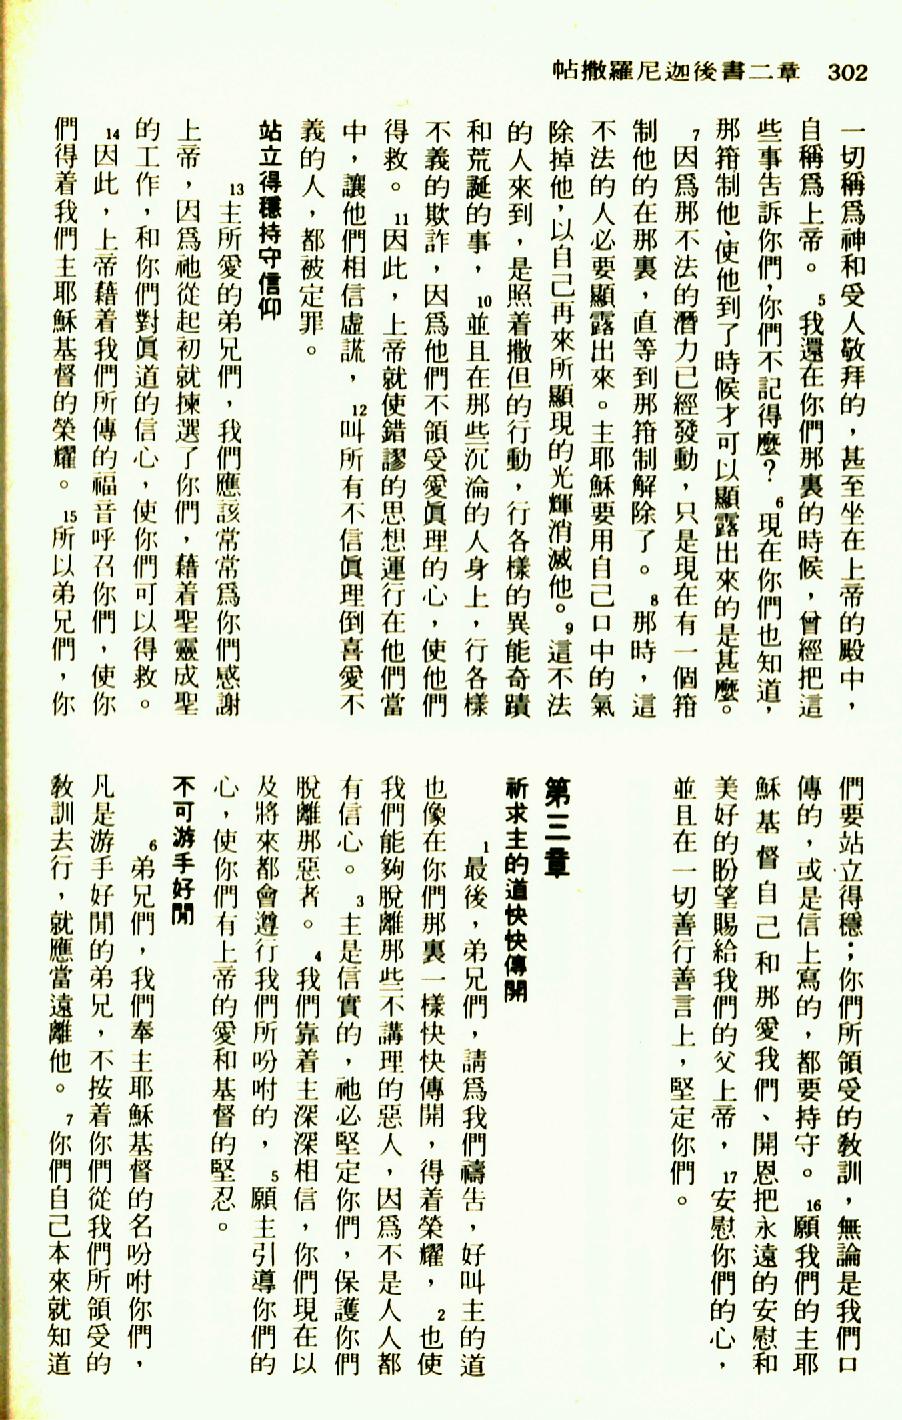 302 帖撒羅尼迦後書二章
一切稱爲神和受人敬拜的，甚至坐在上帝的殿中，
自稱爲上帝。5我還在你們那裏的時候，曾經把這
些事告訴你們，你們不記得麼？6現在你們也知道，
那箝制他、使他到了時候才可以顯露出來的是甚麼。
7因爲那不法的潛力已經發動，只是現在有一個箝
制他的在那裏，直等到那箝制解除了。8那時，這
不法的人必要顯露出來。主耶穌要用自己口中的氣
除掉他，以自己再來所顯現的光輝消滅他。9這不法
的人來到，是照着撒但的行動，行各樣的異能奇蹟
和荒誕的事，10並且在那些沉淪的人身上，行各樣
不義的欺詐，因爲他們不領受愛眞理的心，使他們
得救。11因此，上帝就使錯謬的思想運行在他們當
中，讓他們相信虛謊，12叫所有不信眞理倒喜愛不
義的人，都被定罪。
站立得穩持守信仰
13主所愛的弟兄們，我們應該常常爲你們感謝
上帝，因爲祂從起初就揀選了你們，藉着聖靈成聖
的工作，和你們對眞道的信心，使你們可以得救。
14因此，上帝藉着我們所傳的福音呼召你們，使你
們得着我們主耶穌基督的榮耀。15所以弟兄們，你
們要站立得穩；你們所領受的敎訓，無論是我們口
傳的，或是信上寫的，都要持守。16願我們的主耶
穌基督自己和那愛我們、開恩把永遠的安慰和
美好的盼望賜給我們的父上帝，17安慰你們的心，
並且在一切善行善言上，堅定你們。
第三章
祈求主的道快快傳開
1最後，弟兄們，請爲我們禱告，好叫主的道
也像在你們那裏一樣快快傳開，得着榮耀，2也使
我們能夠脫離那些不講理的惡人，因爲不是人人都
有信心。3主是信實的，祂必堅定你們，保護你們
脫離那惡者。4我們靠着主深深相信，你們現在以
及將來都會遵行我們所吩咐的，5願主引導你們的
心，使你們有上帝的愛和基督的堅忍。
不可游手好閒
6弟兄們，我們奉主耶穌基督的名吩咐你們，
凡是游手好閒的弟兄，不按着你們從我們所領受的
敎訓去行，就應當遠離他。7你們自己本來就知道